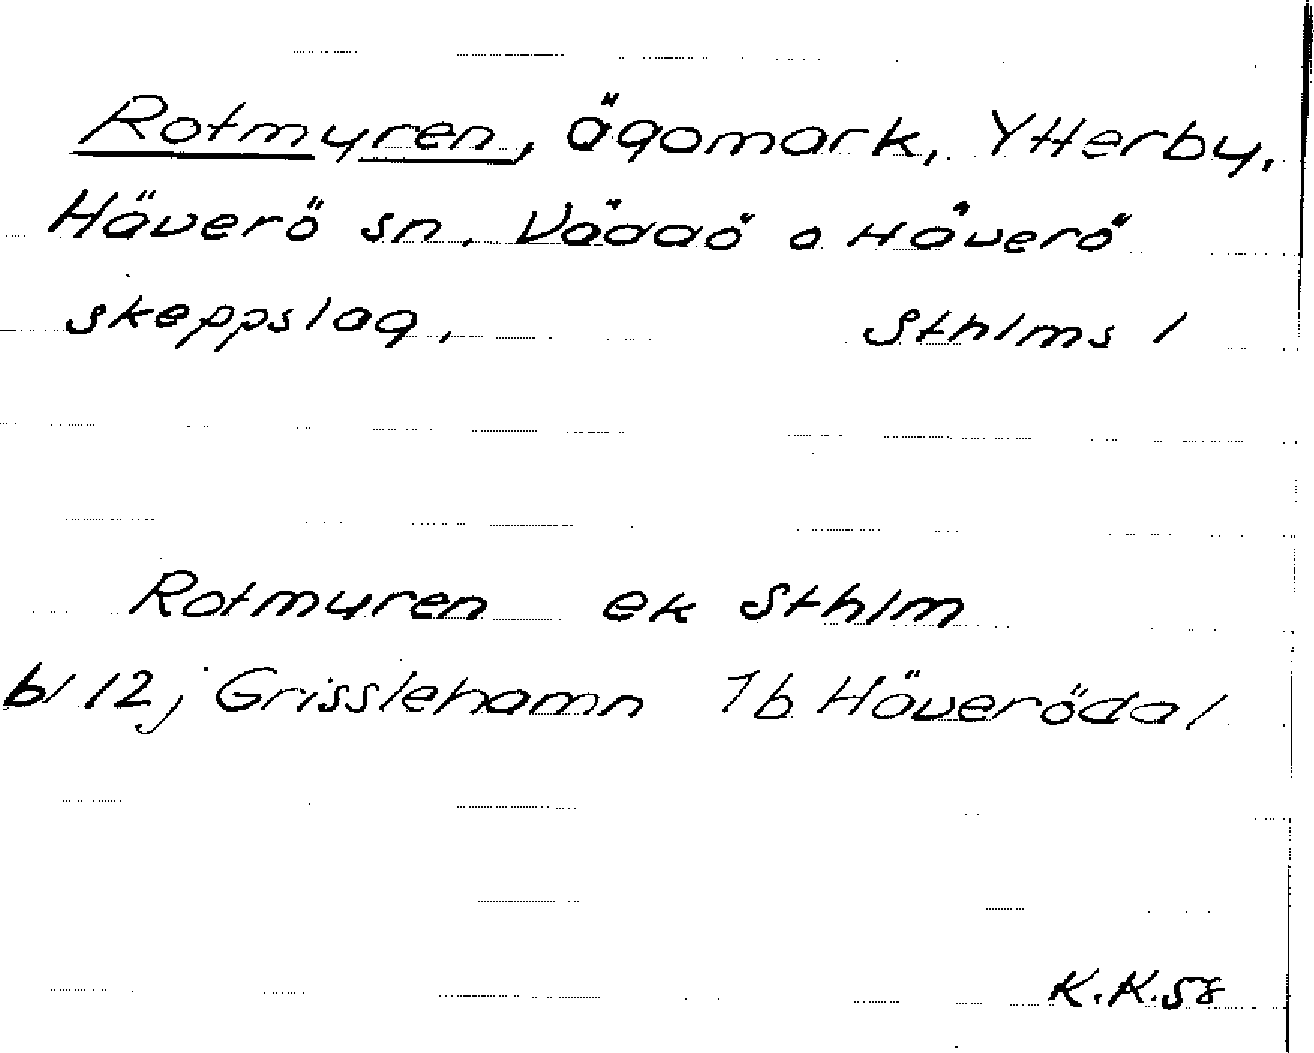 Rotmyren, ägomark, Ytterby,
Häverö sn. Väddö o Häverö
skeppslag, Sthlms l
Rotmyren ek Sthlm
bl 12j Grisslehamn 1b Häverödal
K.K.58